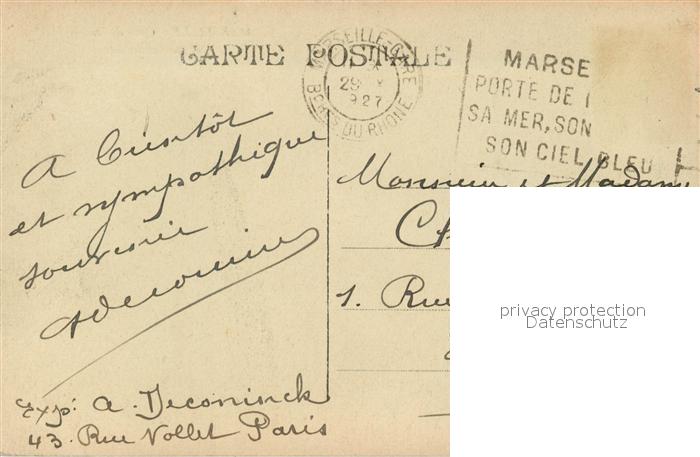 CARTE POSTALE
MARSEILLE-GARE
29 X
1927
BCHES DU RHONE
MARSE
PORTE DE
SA MER, SON
SON CIEL BLEU
A Bientôt
et sympathique
souvenir
ADeconinck
Monsieur et Madame
1. Rue
privacy protection
Datenschutz
Exp: A. Deconinck
43. Rue Nollet Paris